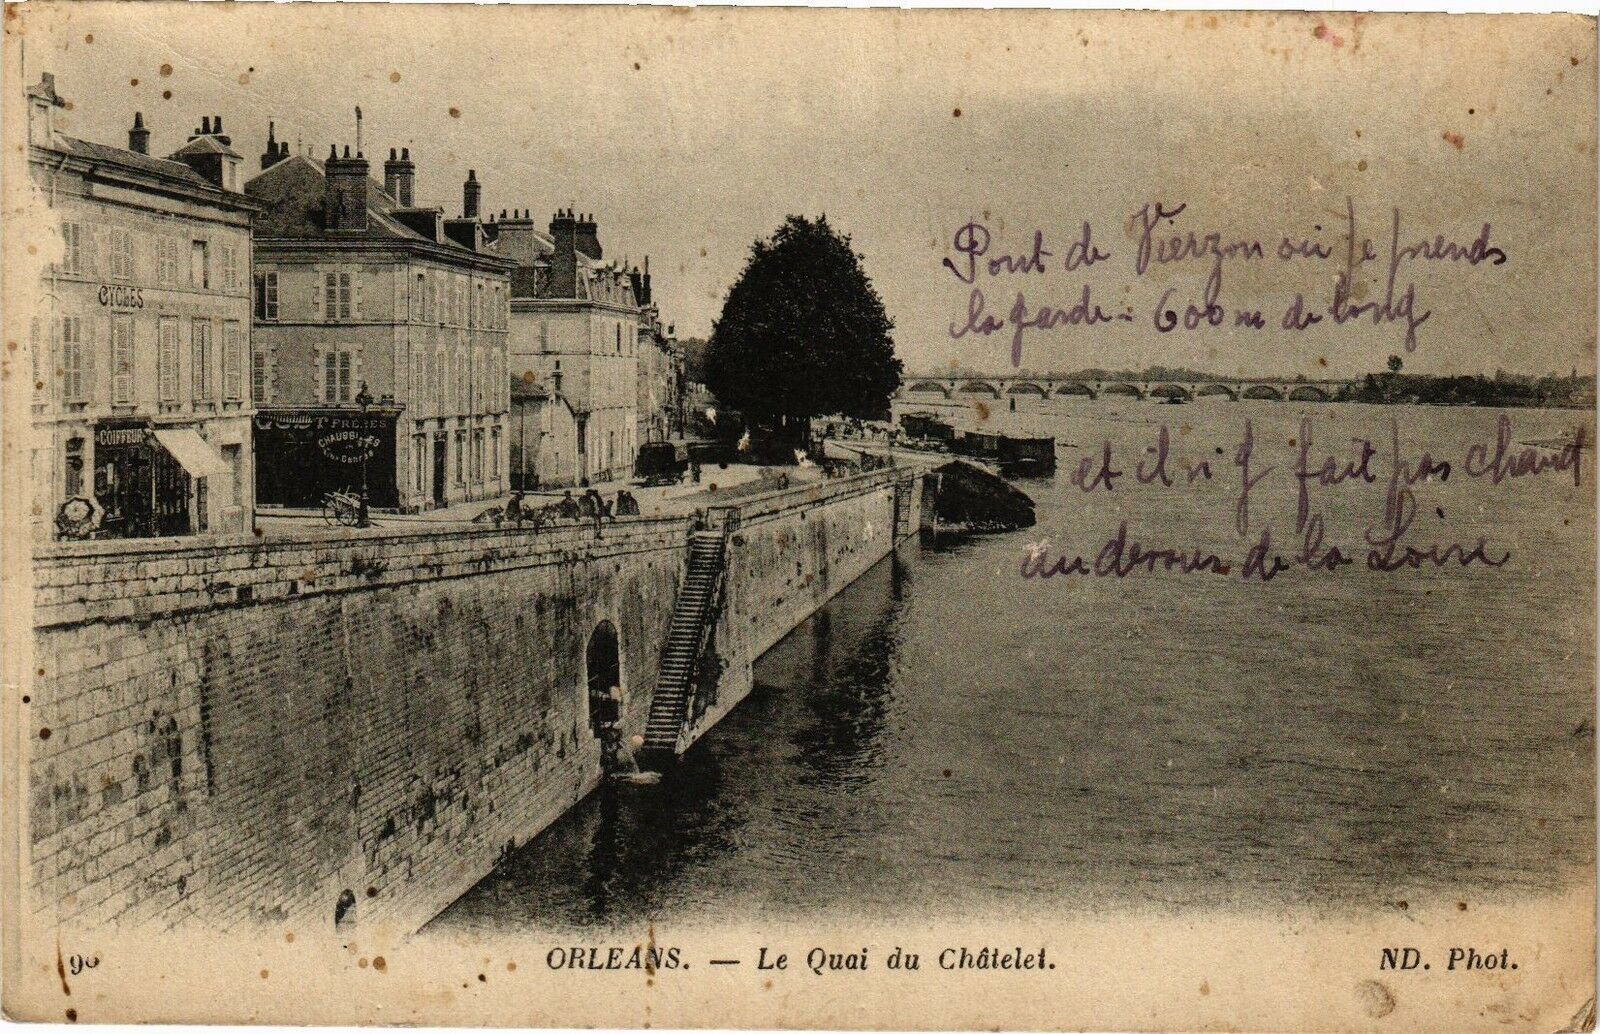 Pont de Vierzon où je prends
la garde - 600m de long
et il n'y fait pas chaud
au dessus de la Loire
CYCLES
COIFFEUR
T FRERES
CHAUSSURES
90
ORLEANS. — Le Quai du Châtelet.
ND. Phot.